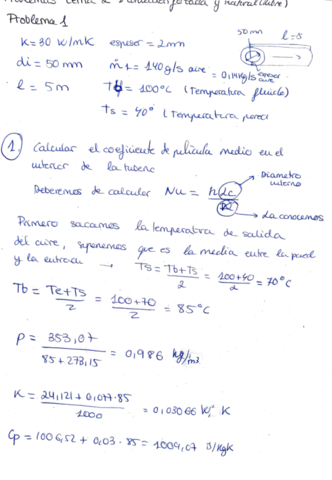 Problema 1
K = 30 W/mK espesor = 2mm
di = 50 mm ṁ1 = 140 g/s aire = 0,14 Kg/s
l = 5m Tb = 100°C (Temperatura fluido)
Ts = 40° (Temperatura pared
50 mm l = 5
1. Calcular el coeficiente de película medio en el
interior de la tubería
Deberemos de calcular Nu =
Diametro
interno
La conocemos
Primero sacamos la temperatura de salida
del aire, suponemos que es la media entre la pared
y la entrada → Ts = Tb+Ts / 2 = 100+40 / 2 = 70°C
Tb = Te+Ts / 2 = 100+70 / 2 = 85°C
ρ = 353,07 / 85+273,15 = 0,986 kg/m3
K = 24,121 + 0,077·85 / 1000 = 0,03066 K
Cp = 1006,52 + 0,03 · 85 = 1009,07 J/KgK